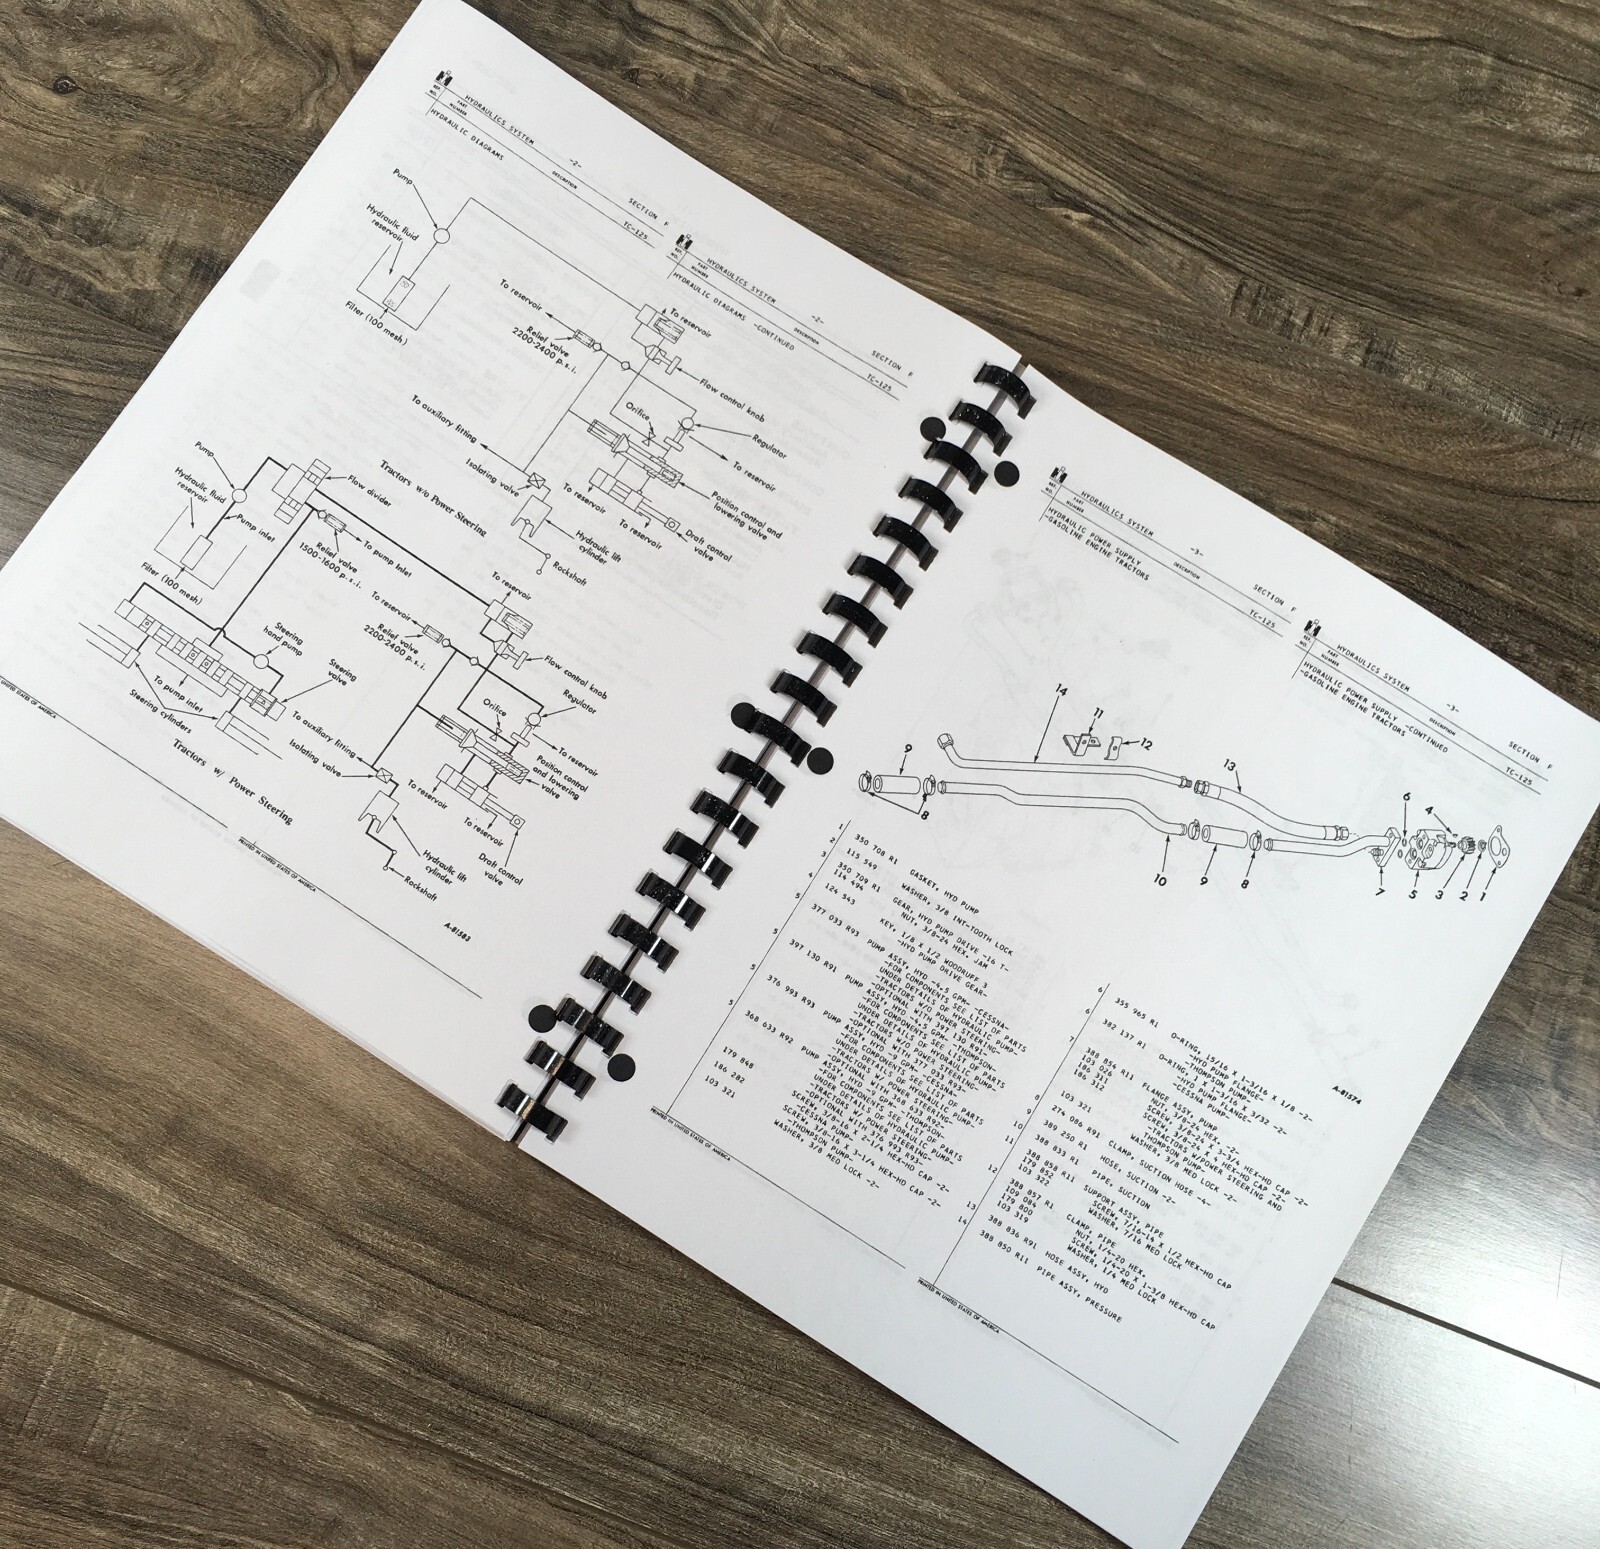 HYDRAULICS SYSTEM
-2-
SECTION F
REF. NO.
PART NUMBER
DESCRIPTION
TC-125
HYDRAULIC DIAGRAMS
HYDRAULICS SYSTEM
-2-
SECTION F
REF. NO.
PART NUMBER
DESCRIPTION
TC-125
HYDRAULIC DIAGRAMS -CONTINUED
Pump
Hydraulic fluid
reservoir
Filter (100 mesh)
To reservoir
Relief valve
2200-2400 p.s.i.
To reservoir
Flow control knob
Orifice
Regulator
To reservoir
To auxiliary fitting
Isolating valve
To reservoir
To reservoir
Position control and
lowering valve
Draft control
valve
Hydraulic lift
cylinder
Rockshaft
Tractors w/o Power Steering
Pump
Hydraulic fluid
reservoir
Pump inlet
Filter (100 mesh)
Flow divider
Relief valve
1500-1600 p.s.i.
To pump inlet
To reservoir
Relief valve
2200-2400 p.s.i.
To reservoir
Flow control knob
Steering
hand pump
Steering
valve
To pump inlet
Steering cylinders
Orifice
Regulator
To reservoir
To auxiliary fitting
Isolating valve
Position control
and lowering
valve
To reservoir
To reservoir
Draft control
valve
Hydraulic lift
cylinder
Rockshaft
Tractors w/ Power Steering
A-81583
UNITED STATES OF AMERICA
PRINTED IN UNITED STATES OF AMERICA
HYDRAULICS SYSTEM
-3-
SECTION F
REF. NO.
PART NUMBER
DESCRIPTION
TC-125
HYDRAULIC POWER SUPPLY
-GASOLINE ENGINE TRACTORS
HYDRAULICS SYSTEM
-3-
SECTION F
REF. NO.
PART NUMBER
DESCRIPTION
TC-125
HYDRAULIC POWER SUPPLY -CONTINUED
-GASOLINE ENGINE TRACTORS
14
11
12
9
8
13
6
4
10
9
8
7
5
3
2
1
A-81574
1 350 708 R1 GASKET, HYD PUMP
2 115 549 WASHER, 3/8 INT-TOOTH LOCK
3 350 709 R1 GEAR, HYD PUMP DRIVE -16 T-
114 494 NUT, 3/8-24 HEX. JAM
4 124 543 KEY, 1/8 X 1/2 WOODRUFF 3
-HYD PUMP DRIVE GEAR-
5 377 033 R93 PUMP ASSY, HYD -4.5 GPM- -CESSNA-
-FOR COMPONENTS SEE LIST OF PARTS
UNDER DETAILS OF HYDRAULIC PUMP-
-TRACTORS W/O POWER STEERING-
-OPTIONAL WITH 397 130 R91-
5 397 130 R91 PUMP ASSY, HYD -4.5 GPM- -THOMPSON-
-FOR COMPONENTS SEE LIST OF PARTS
UNDER DETAILS OF HYDRAULIC PUMP-
-TRACTORS W/O POWER STEERING-
-OPTIONAL WITH 377 033 R93-
5 376 993 R93 PUMP ASSY, HYD -9 GPM- -CESSNA-
-FOR COMPONENTS SEE LIST OF PARTS
UNDER DETAILS OF HYDRAULIC PUMP-
-TRACTORS W/ POWER STEERING-
-OPTIONAL WITH 368 633 R92-
5 368 633 R92 PUMP ASSY, HYD -9 GPM- -THOMPSON-
-FOR COMPONENTS SEE LIST OF PARTS
UNDER DETAILS OF HYDRAULIC PUMP-
-TRACTORS W/ POWER STEERING-
-OPTIONAL WITH 376 993 R93-
179 848 SCREW, 3/8-16 X 2-1/4 HEX-HD CAP -2-
-CESSNA PUMP-
186 282 SCREW, 3/8-16 X 3-1/4 HEX-HD CAP -2-
-THOMPSON PUMP-
103 321 WASHER, 3/8 MED LOCK -2-
6 355 965 R1 O-RING, 15/16 X 1-3/16 X 1/8 -2-
-HYD PUMP FLANGE-
-THOMPSON PUMP-
6 382 137 R1 O-RING, 1 X 1-3/16 X 3/32 -2-
-HYD PUMP FLANGE-
-CESSNA PUMP-
7 388 854 R11 FLANGE ASSY, PUMP
103 026 NUT, 3/8-24 HEX. -2-
186 311 SCREW, 3/8-24 X 3-3/4 HEX-HD CAP -2-
186 312 SCREW, 3/8-24 X 4 HEX-HD CAP -2-
-TRACTORS W/POWER STEERING AND
THOMPSON PUMP-
103 321 WASHER, 3/8 MED LOCK -2-
8 274 086 R91 CLAMP, SUCTION HOSE -4-
9 389 250 R1 HOSE, SUCTION -2-
10 388 833 R1 PIPE, SUCTION
11 388 858 R11 SUPPORT ASSY, PIPE
179 852 SCREW, 7/16-14 X 1/2 HEX-HD CAP
103 322 WASHER, 7/16 MED LOCK
12 388 857 R1 CLAMP, PIPE
109 084 NUT, 1/4-20 HEX.
179 800 SCREW, 1/4-20 X 1-3/8 HEX-HD CAP
103 319 WASHER, 1/4 MED LOCK
13 388 836 R91 HOSE ASSY, HYD
14 388 850 R11 PIPE ASSY, PRESSURE
PRINTED IN UNITED STATES OF AMERICA
PRINTED IN UNITED STATES OF AMERICA